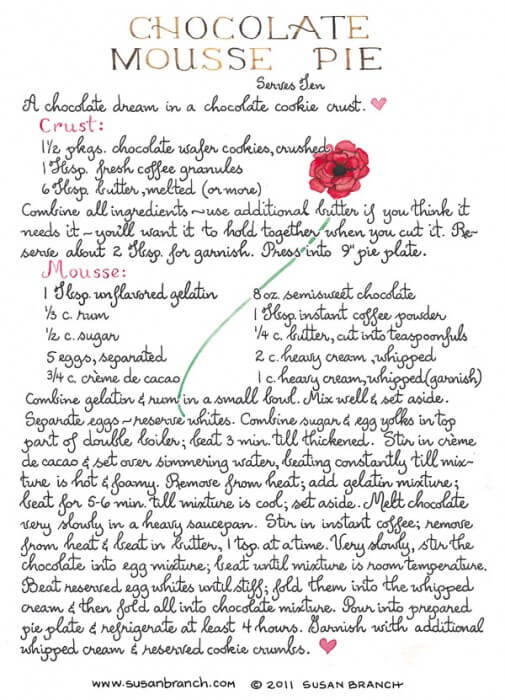 CHOCOLATE
MOUSSE PIE
Serves Ten
A chocolate dream in a chocolate cookie crust.
Crust:
1½ pkgs. chocolate wafer cookies, crushed
1 Tbsp. fresh coffee granules
6 Tbsp. butter, melted (or more)
Combine all ingredients ~ use additional butter if you think it
needs it ~ you'll want it to hold together when you cut it. Re-
serve about 2 Tbsp. for garnish. Press into 9" pie plate.
Mousse:
1 Tbsp. unflavored gelatin
⅓ c. rum
½ c. sugar
5 eggs, separated
¾ c. crème de cacao
8 oz. semisweet chocolate
1 Tbsp instant coffee powder
¼ c. butter, cut into teaspoonfuls
2 c. heavy cream, whipped
1 c. heavy cream, whipped (garnish)
Combine gelatin & rum in a small bowl. Mix well & set aside.
Separate eggs ~ reserve whites. Combine sugar & egg yolks in top
part of double boiler; beat 3 min. till thickened. Stir in crème
de cacao & set over simmering water, beating constantly till mix-
ture is hot & foamy. Remove from heat; add gelatin mixture;
beat for 5-6 min. till mixture is cool; set aside. Melt chocolate
very slowly in a heavy saucepan. Stir in instant coffee; remove
from heat & beat in butter, 1 tsp. at a time. Very slowly, stir the
chocolate into egg mixture; beat until mixture is room temperature.
Beat reserved egg whites until stiff; fold them into the whipped
cream & then fold all into chocolate mixture. Pour into prepared
pie plate & refrigerate at least 4 hours. Garnish with additional
whipped cream & reserved cookie crumbs.
www.susanbranch.com © 2011 SUSAN BRANCH